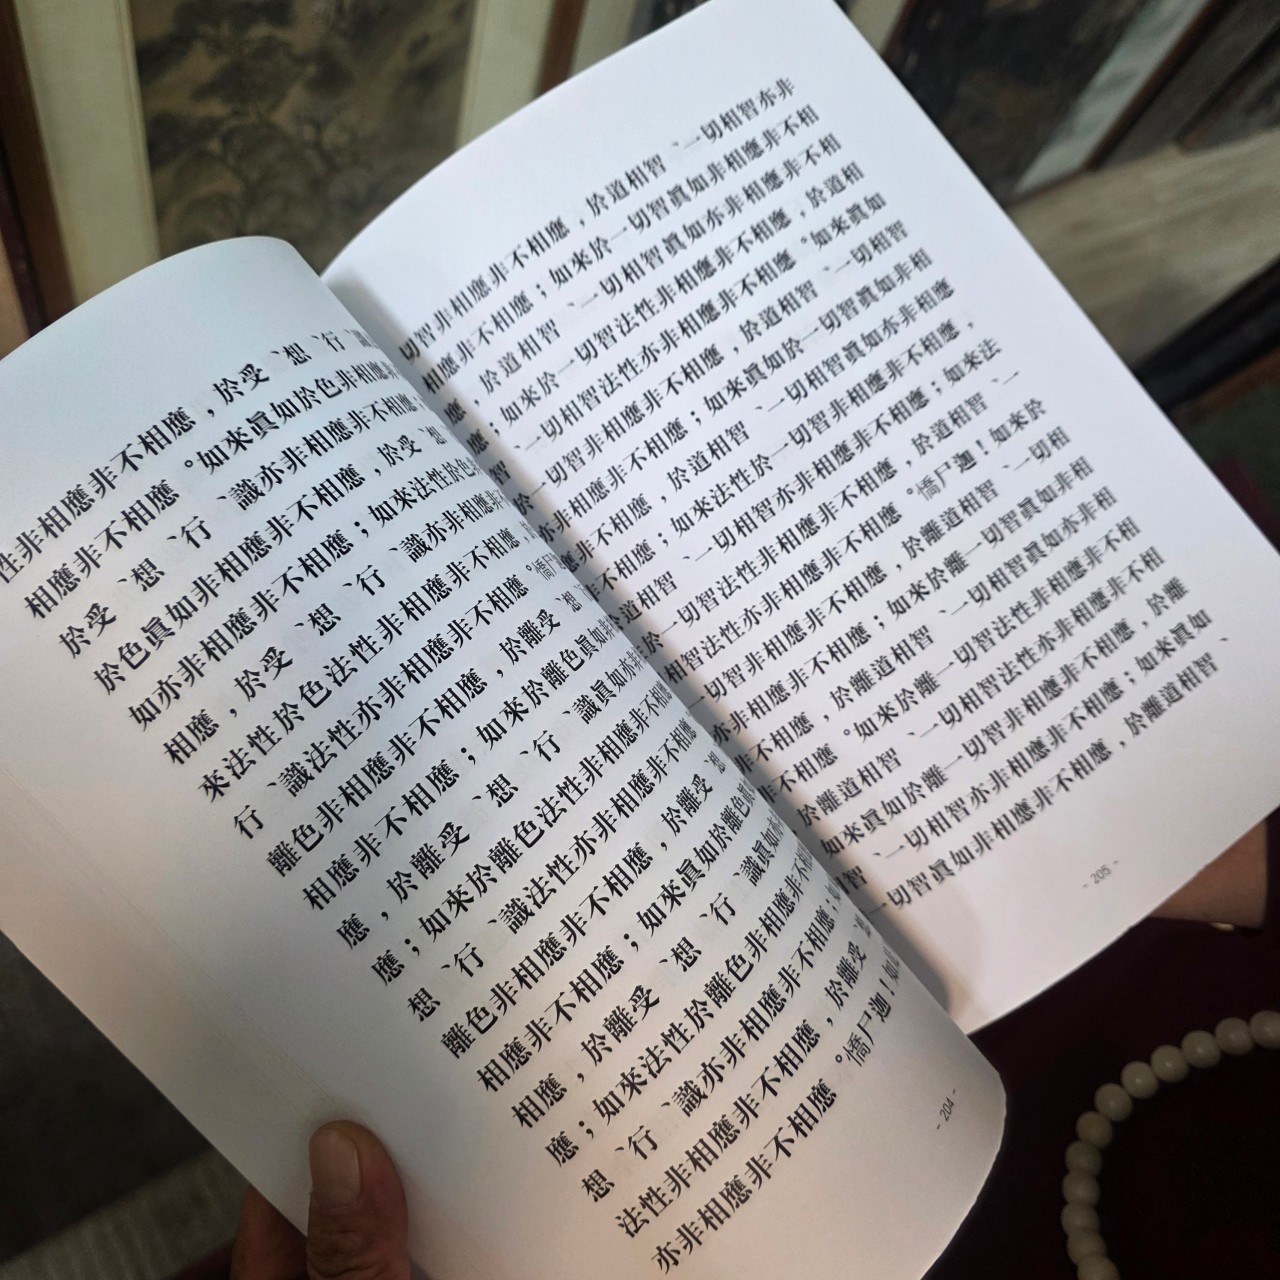 性非相應非不相應，於受、想、行、識
相應非不相應。如來眞如於色非相應非
於受、想、行、識亦非相應非不相應
於色眞如非相應非不相應，於受、想
如亦非相應非不相應；如來法性於色
相應，於受、想、行、識亦非相應非
來法性於色法性非相應非不相應，
行、識法性亦非相應非不相應。憍尸
離色非相應非不相應，於離受、想
相應非不相應；如來於離色眞如非
應，於離受、想、行、識眞如亦非
應；如來於離色法性非相應非不
想、行、識法性亦非相應非不相應
離色非相應非不相應，於離受、想
相應非不相應；如來眞如於離色
相應，於離受、想、行、識眞如
應；如來法性於離色非相應非不
想、行、識亦非相應非不相應，
法性非相應非不相應，於離受
亦非相應非不相應。憍尸迦！如
- 204 -
切智非相應非不相應，於道相智、一切相智亦非
相應非不相應；如來於一切智眞如非相應非不相
應，於道相智、一切相智眞如亦非相應非不相
應；如來於一切智法性非相應非不相應，於道相
智、一切相智法性亦非相應非不相應。如來眞如
於一切智非相應非不相應，於道相智、一切相智
亦非相應非不相應；如來眞如於一切智眞如非相
應非不相應，於道相智、一切相智眞如亦非相應
非不相應；如來法性於一切智非相應非不相應，
於道相智、一切相智亦非相應非不相應；如來法
於一切智法性非相應非不相應，於道相智、一
相智法性亦非相應非不相應。憍尸迦！如來於
一切智非相應非不相應，於離道相智、一切相
亦非相應非不相應；如來於離一切智眞如非相
非不相應，於離道相智、一切相智眞如亦非相
非不相應。如來於離一切智法性非相應非不相
於離道相智、一切相智法性亦非相應非不相
如來眞如於離一切智非相應非不相應，於離
相智、一切相智亦非相應非不相應；如來眞如
一切智眞如非相應非不相應，於離道相智、
- 205 -